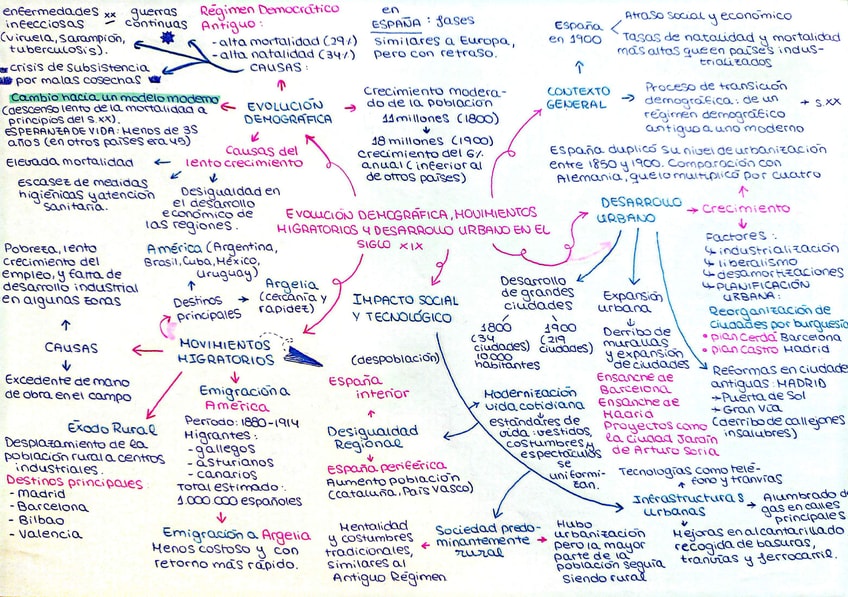 enfermedades xx guerras
infecciosas continuas
(viruela, sarampión,
tuberculosis).
crisis de subsistencia
por malas cosechas
Régimen Democrático
Antiguo:
-alta mortalidad (29%)
-alta natalidad (34%)
CAUSAS:
en
ESPAÑA: fases
similares a Europa,
pero con retraso.
España
en 1900
Atraso social y económico
Tasas de natalidad y mortalidad
más altas que en países indus-
trializados
CONTEXTO
GENERAL
Proceso de transición
demográfica: de un
régimen demográfico
antiguo a uno moderno
→ s.XX
Cambio hacia un modelo moderno
(descenso lento de la mortalidad a
principios del s.xx).
ESPERANZA DE VIDA: Menos de 35
años (en otros países era 45)
EVOLUCIÓN
DEMOGRÁFICA
Crecimiento modera-
do de la población
11 millones (1800)
18 millones (1900)
Crecimiento del 6%
anual (inferior al
de otros países)
Causas del
lento crecimiento
Elevada mortalidad
Escasez de medidas
higiénicas y atención
sanitaria.
Desigualdad en
el desarrollo
económico de
las regiones.
España duplicó su nivel de urbanización
entre 1850 y 1900. Comparación con
Alemania, que lo multiplicó por cuatro
EVOLUCIÓN DEMOGRÁFICA, MOVIMIENTOS
MIGRATORIOS Y DESARROLLO URBANO EN EL
SIGLO XIX
DESARROLLO
URBANO
→ Crecimiento
Factores:
↳ industrialización
↳ liberalismo
↳ desamortizaciones
↳ PLANIFICACIÓN
URBANA:
Reorganización de
ciudades por burguesía
• plan Cerdá Barcelona
• plan Castro Madrid
Reformas en ciudade
antiguas: MADRID
→ Puerta de Sol
→ Gran Vía
(derribo de callejones
insalubres)
Pobreza, lento
crecimiento del
empleo, y falta de
desarrollo industrial
en algunas zonas
CAUSAS
Excedente de mano
de obra en el campo
América (Argentina,
Brasil, Cuba, México,
Uruguay)
Destinos
principales
Argelia
(cercanía y
rapidez)
MOVIMIENTOS
MIGRATORIOS
Éxodo Rural
Desplazamiento de la
población rural a centros
industriales.
Destinos principales:
- Madrid
- Barcelona
- Bilbao
- Valencia
Emigración a
América
Período: 1880-1914
Migrantes:
-gallegos
-asturianos
-canarios
Total estimado:
1.000.000 españoles
Emigración a Argelia
Menos costoso y con
retorno más rápido.
IMPACTO SOCIAL
Y TECNOLÓGICO
(despoblación)
España
interior
Desigualdad
Regional
España periférica
Aumento población
(Cataluña, País Vasco)
Desarrollo
de grandes
ciudades
1800
(34
ciudades)
10000
habitantes
1900
(219
ciudades)
Expansión
urbana
Derribo de
murallas
y expansión
de ciudades
Ensanche de
Barcelona
Ensanche de
Madrid
Proyectos como
la ciudad Jardín
de Arturo Soria
Modernización
vida cotidiana
estándares de
vida: vestidos,
costumbres y
espectáculos
se
uniformi-
zan.
Sociedad predo-
minantemente
rural
Mentalidad
y costumbres
tradicionales,
similares al
Antiguo Régimen
Hubo
urbanización
pero la mayor
parte de la
población seguía
siendo rural
Tecnologías como telé-
fono y tranvías
Infraestructuras
urbanas
Alumbrado de
gas en calles
principales
Mejoras en alcantarillado
recogida de basuras,
tranvías y ferrocarril.